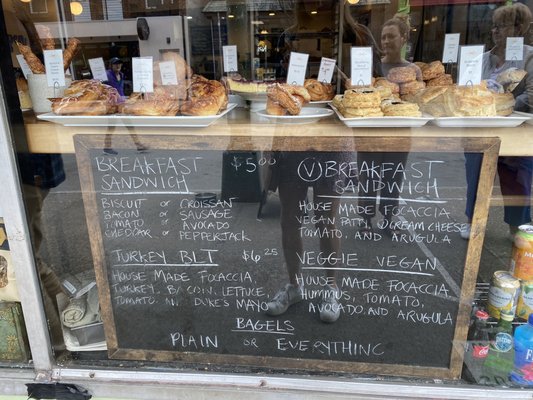 BREAKFAST $5.00
SANDWICH
BISCUIT OR CROISSAN
BACON OR SAUSAGE
TOMATO OR AVOCADO
CHEDDAR OR PEPPERJACK
TURKEY BLT $6.25
HOUSE MADE FOCACCIA,
TURKEY, BACON, LETTUCE,
TOMATO, DUKE'S MAYO
(V) BREAKFAST
SANDWICH
HOUSE MADE FOCACCIA
VEGAN PATTY, (V) CREAM CHEESE
TOMATO, AND ARUGULA
VEGGIE VEGAN
HOUSE MADE FOCACCIA,
HUMMUS, TOMATO,
AVOCADO AND ARUGULA
BAGELS
PLAIN OR EVERYTHING